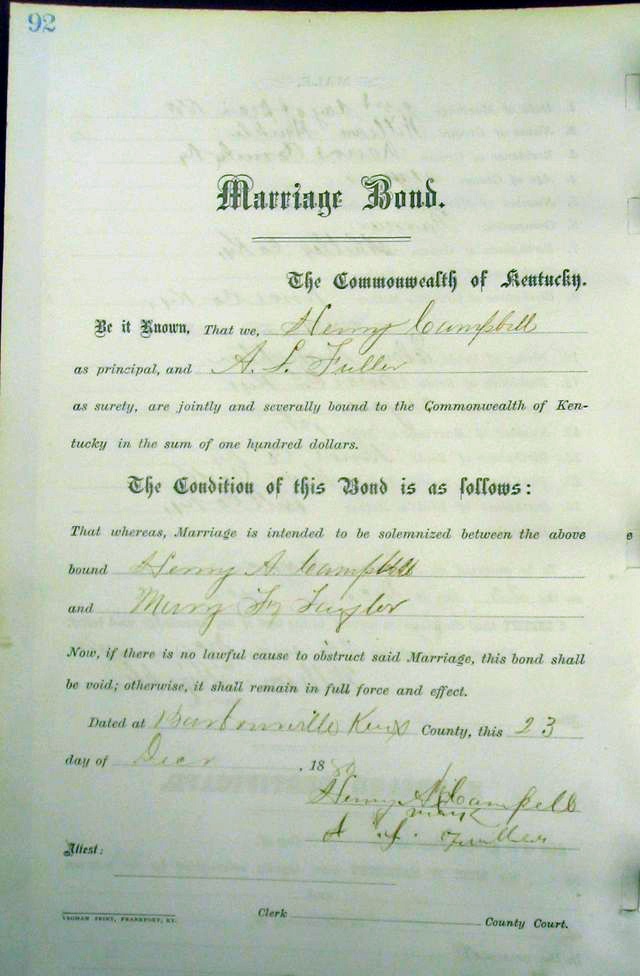 92
Marriage Bond.
The Commonwealth of Kentucky.
Be it Known, That we, Henry Campbell
as principal, and A. L. Fuller
as surety, are jointly and severally bound to the Commonwealth of Ken-
tucky in the sum of one hundred dollars.
The Condition of this Bond is as follows:
That whereas, Marriage is intended to be solemnized between the above
bound Henry A. Campbell
and
Now, if there is no lawful cause to obstruct said Marriage, this bond shall
be void; otherwise, it shall remain in full force and effect.
Dated at Barbourville Knox County, this 23
day of Decr , 18
Henry A Campbell
mark
Fuller
Attest:
Clerk County Court.
YEOMAN PRINT, FRANKFORT, KY.